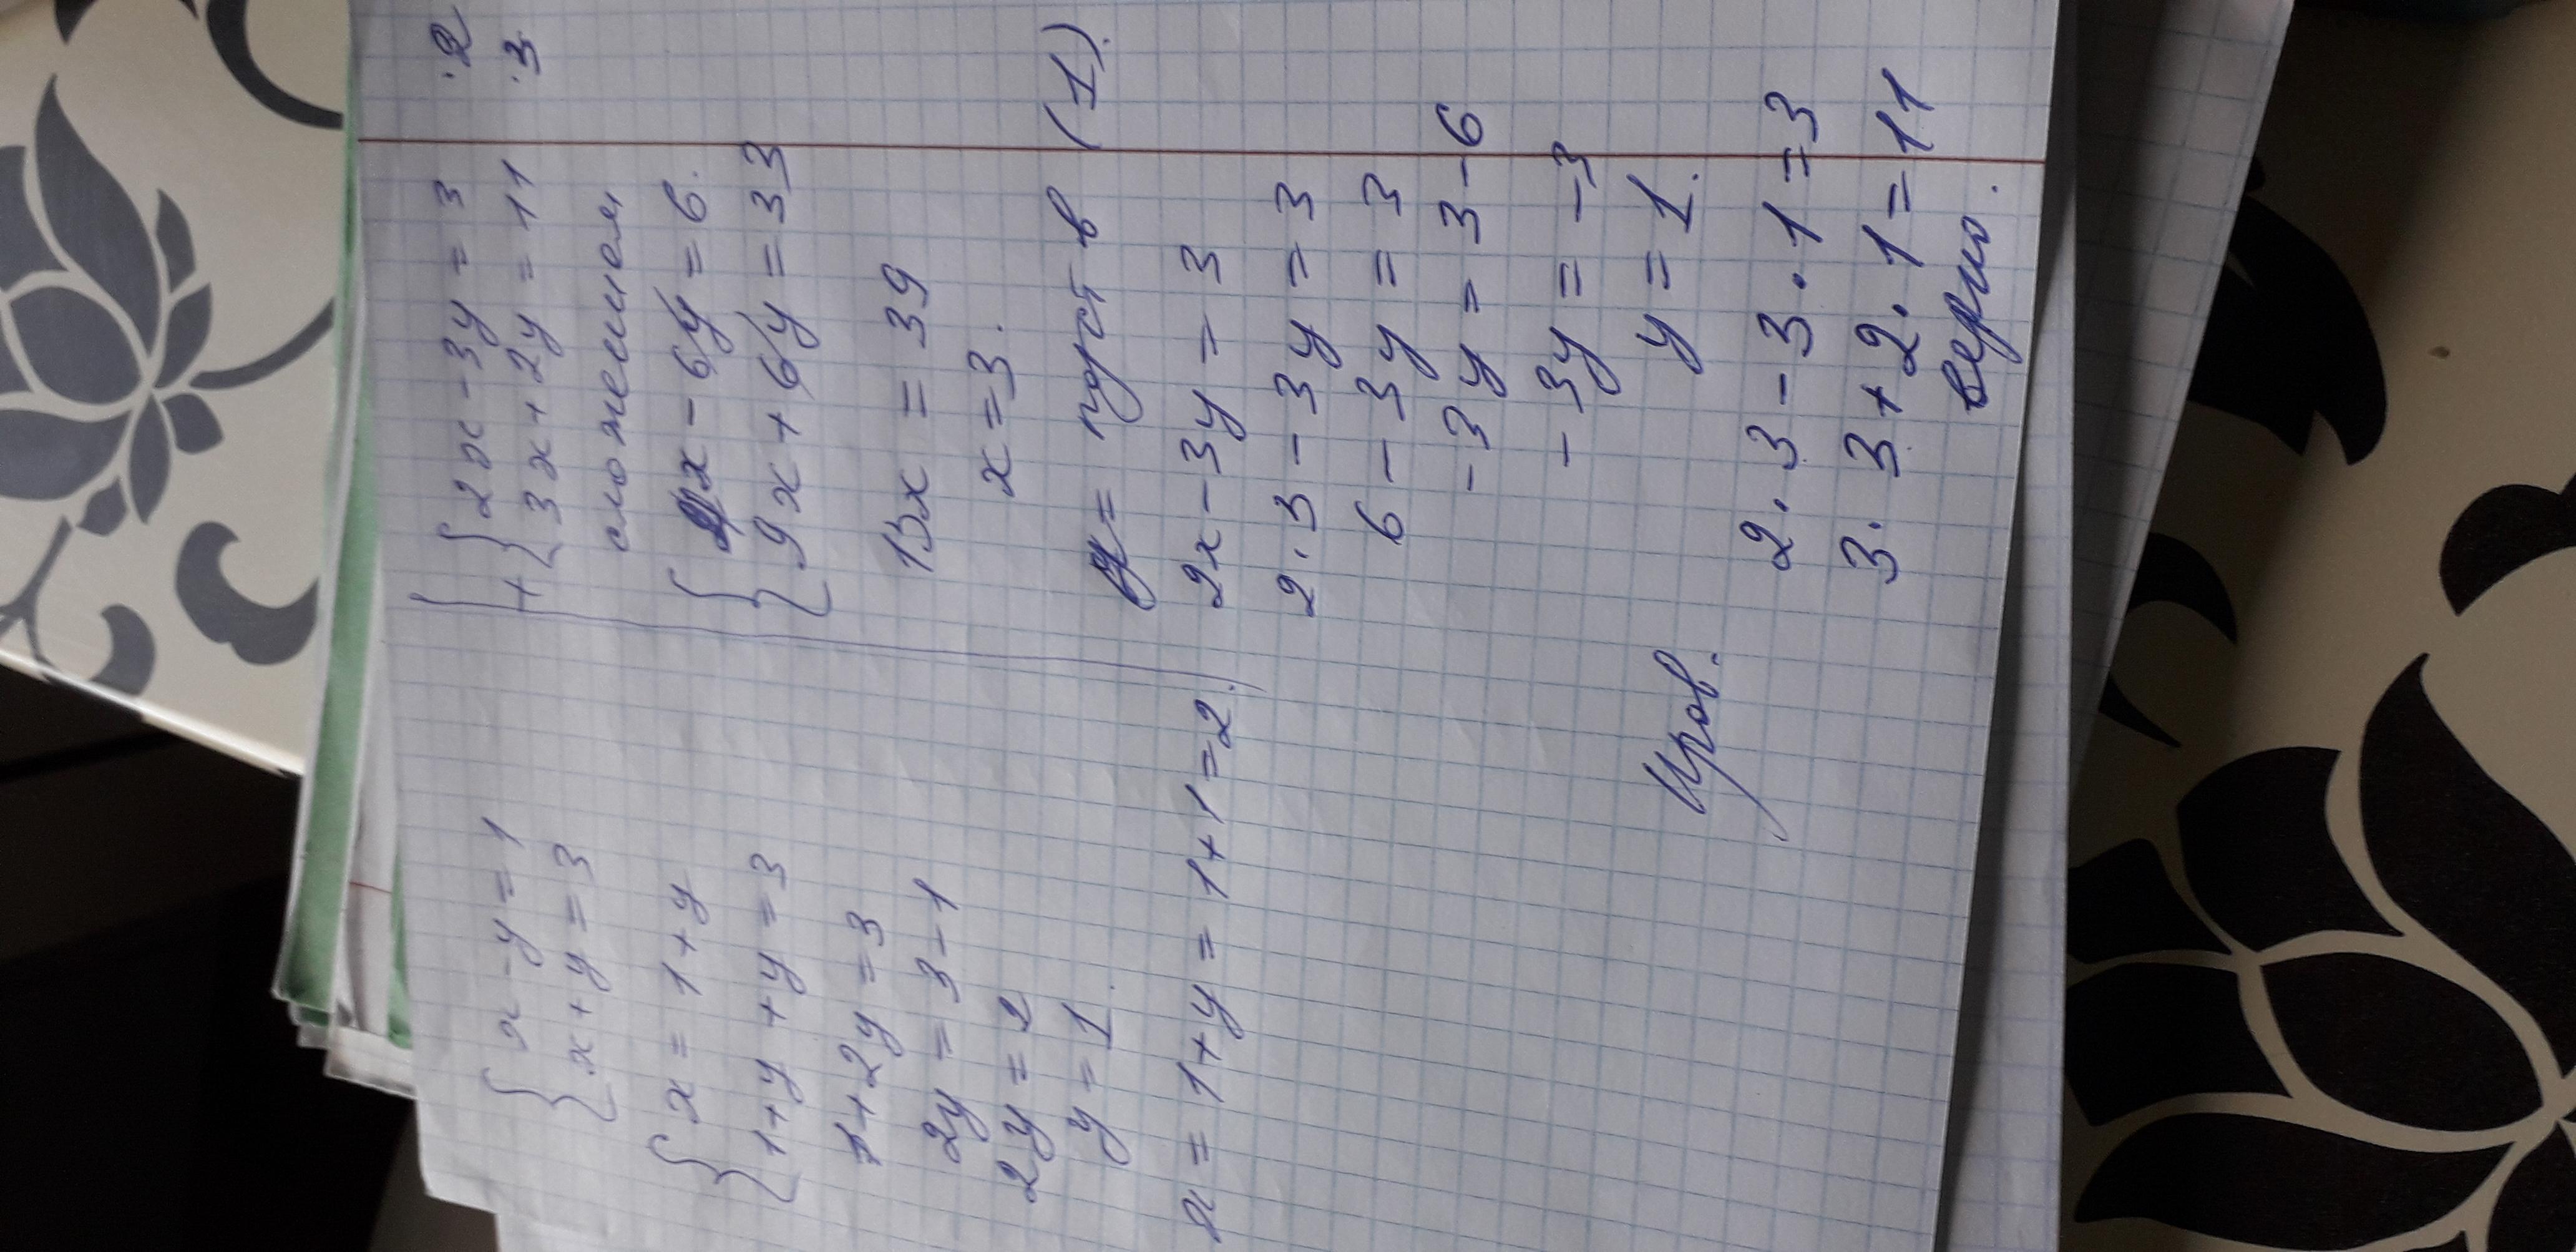 { x - y = 1
{ x + y = 3
{ x = 1 + y
{ 1 + y + y = 3
1 + 2y = 3
2y = 3 - 1
2y = 2
y = 1.
x = 1 + y = 1 + 1 = 2.
{ 2x - 3y = 3 ·2
+ { 3x + 2y = 11 ·3
сложением
{ x - 6y = 6.
{ 9x + 6y = 33
13x = 39
x = 3.
= подст в (1).
2x - 3y = 3
2 · 3 - 3y = 3
6 - 3y = 3
-3y = 3 - 6
-3y = -3
y = 1.
Пров.
2 · 3 - 3 · 1 = 3
3 · 3 + 2 · 1 = 11
верно.